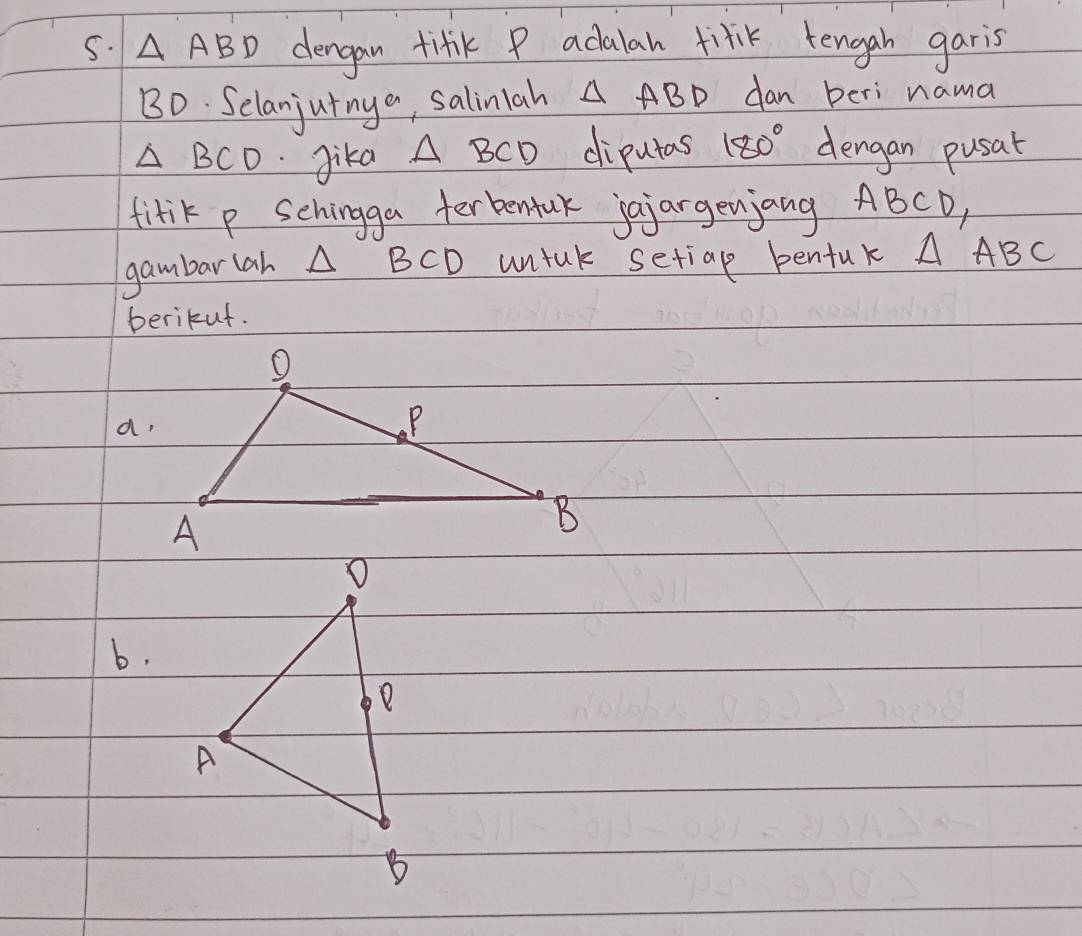 5. Δ ABD dengan titik P adalah titik tengah garis
BD. Selanjutnya, salinlah Δ ABD dan beri nama
Δ BCD. Jika Δ BCD diputas 180° dengan pusat
titik p sehingga terbentuk jajargenjang ABCD,
gambarlah Δ BCD untuk setiap bentuk Δ ABC
berikut.
D
a.
P
A
B
D
b.
P
A
B